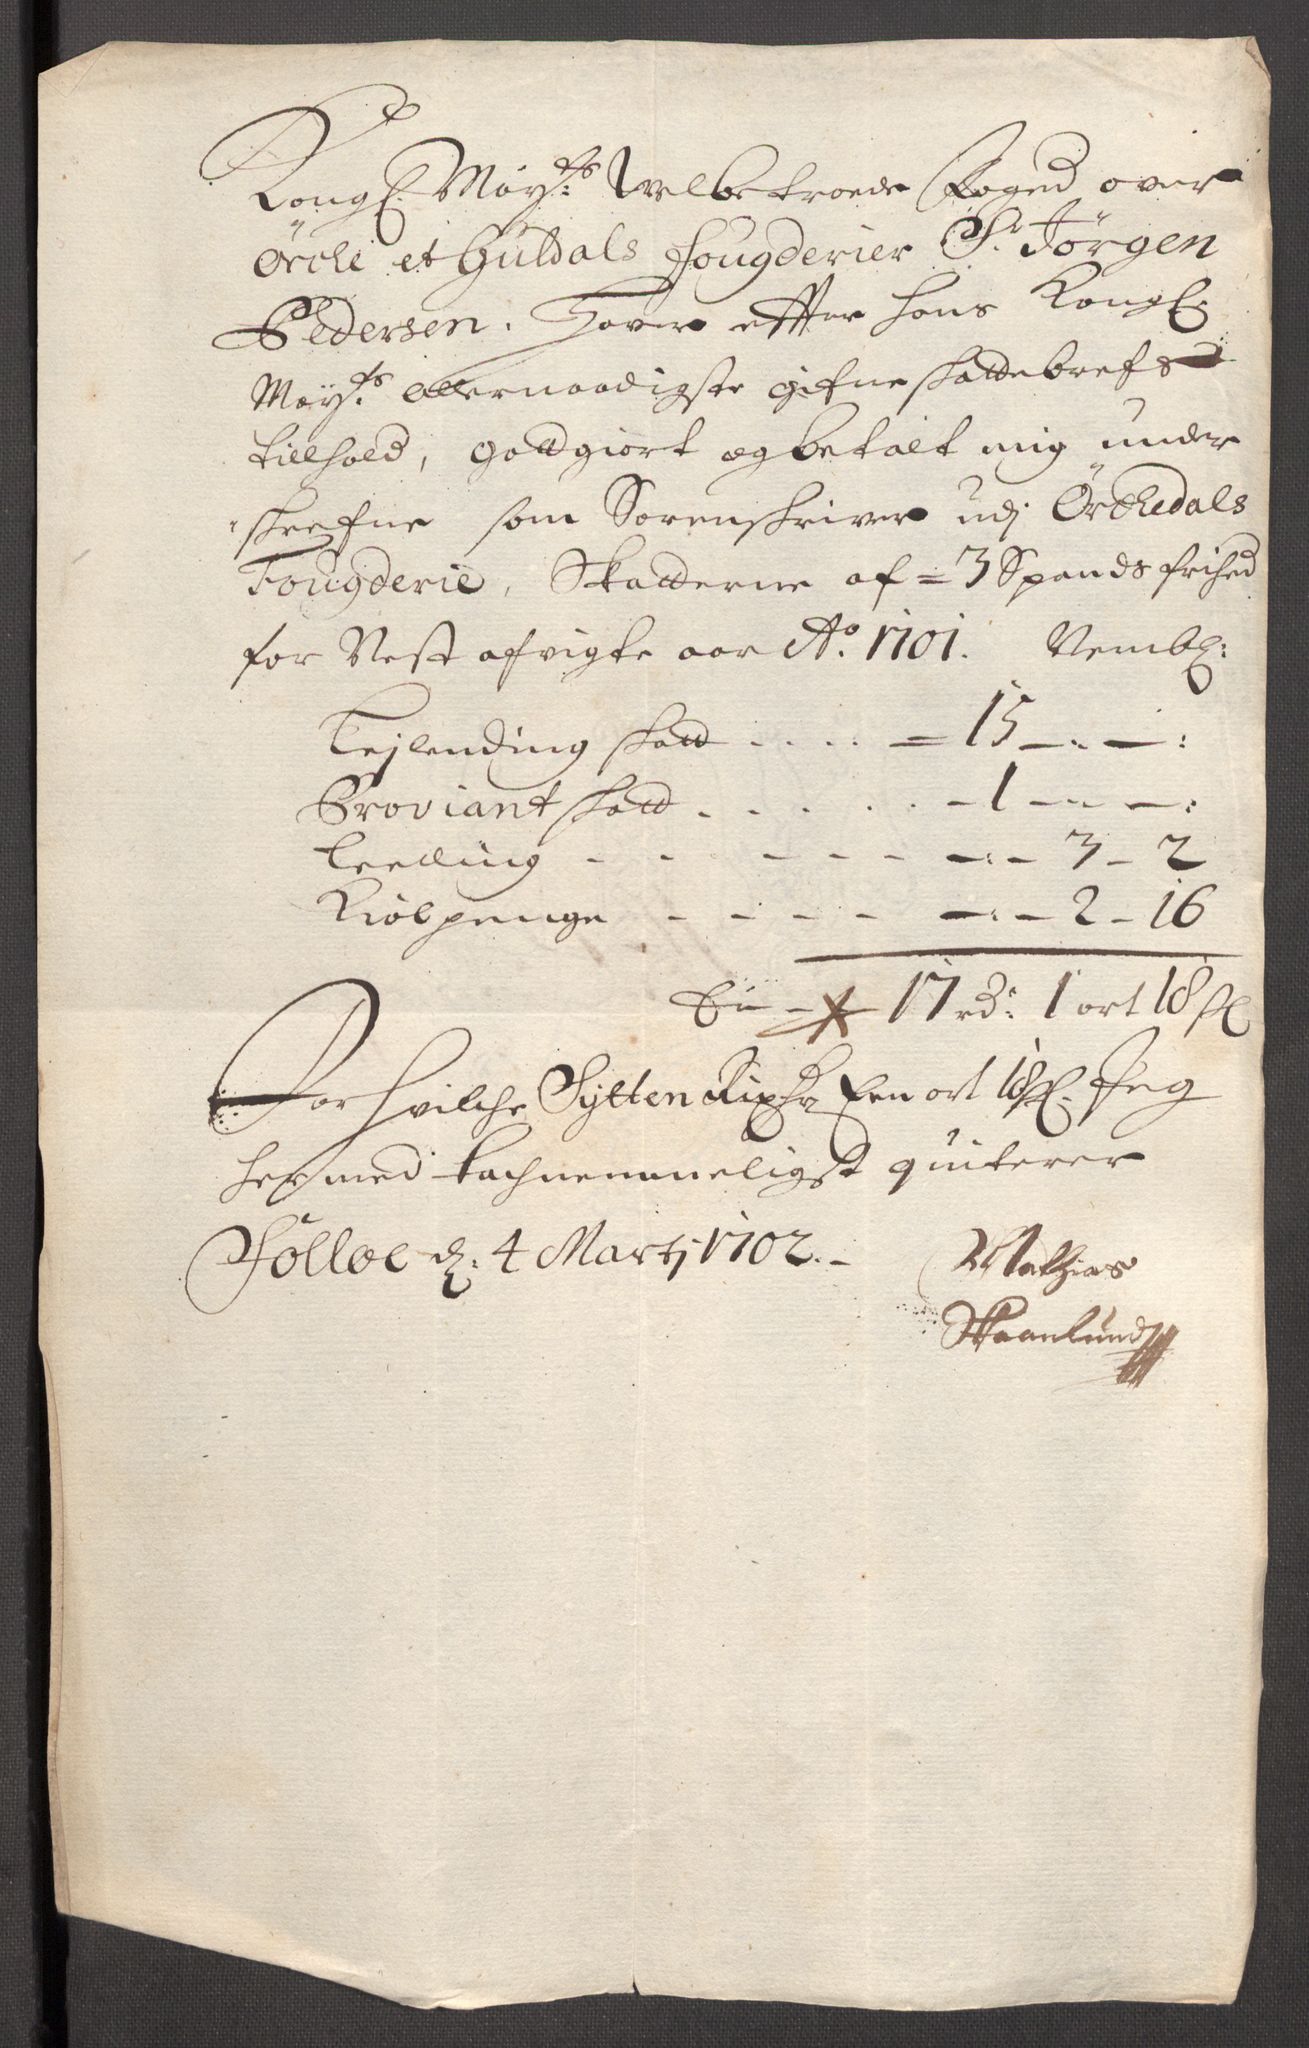 Kongl. Mayts: Welbetroede Foged over
Örche et Guldals fougderier Sr. Jörgen
Pedersen. Haver effter hans Kongl.
Mayts: allernaadigste gifne skattebrefs
tillhold, gottgiort og betalt mig under
skrefne som Sorenskriver udj Örckedals
Fougderie, Skatterne af = 3 Spands frihed
for Nest afvigte aar Ao. 1701. Nembl:
Lejlending skatt . . . . = 15 – . – :
Proviant skatt . . . . . – 1 – – – :
Leeding - - - - - - – : – 3 – 2
Kiölpenge - - - - – : – 2 – 16
Er – 17 rd: 1 ort 18 sl
For hvilche Sytten Rixdr Een ort 18 sl. Jeg
hermed tachnemmeligst quiterer
Follöe d: 4 Martj 1702. –
Mathias
Skaanlund